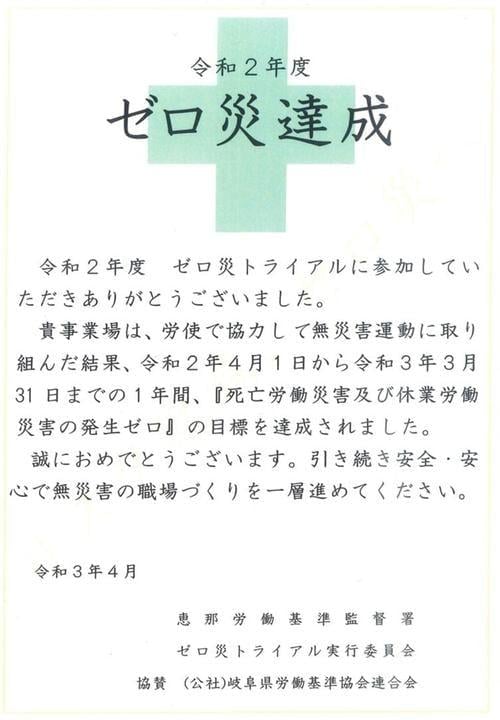 令和２年度
ゼロ災達成
令和２年度　ゼロ災トライアルに参加してい
ただきありがとうございました。
貴事業場は、労使で協力して無災害運動に取り
組んだ結果、令和２年４月１日から令和３年３月
31 日までの１年間、『死亡労働災害及び休業労働
災害の発生ゼロ』の目標を達成されました。
誠におめでとうございます。引き続き安全・安
心で無災害の職場づくりを一層進めてください。
令和３年４月
恵那労働基準監督署
ゼロ災トライアル実行委員会
協賛　(公社)岐阜県労働基準協会連合会